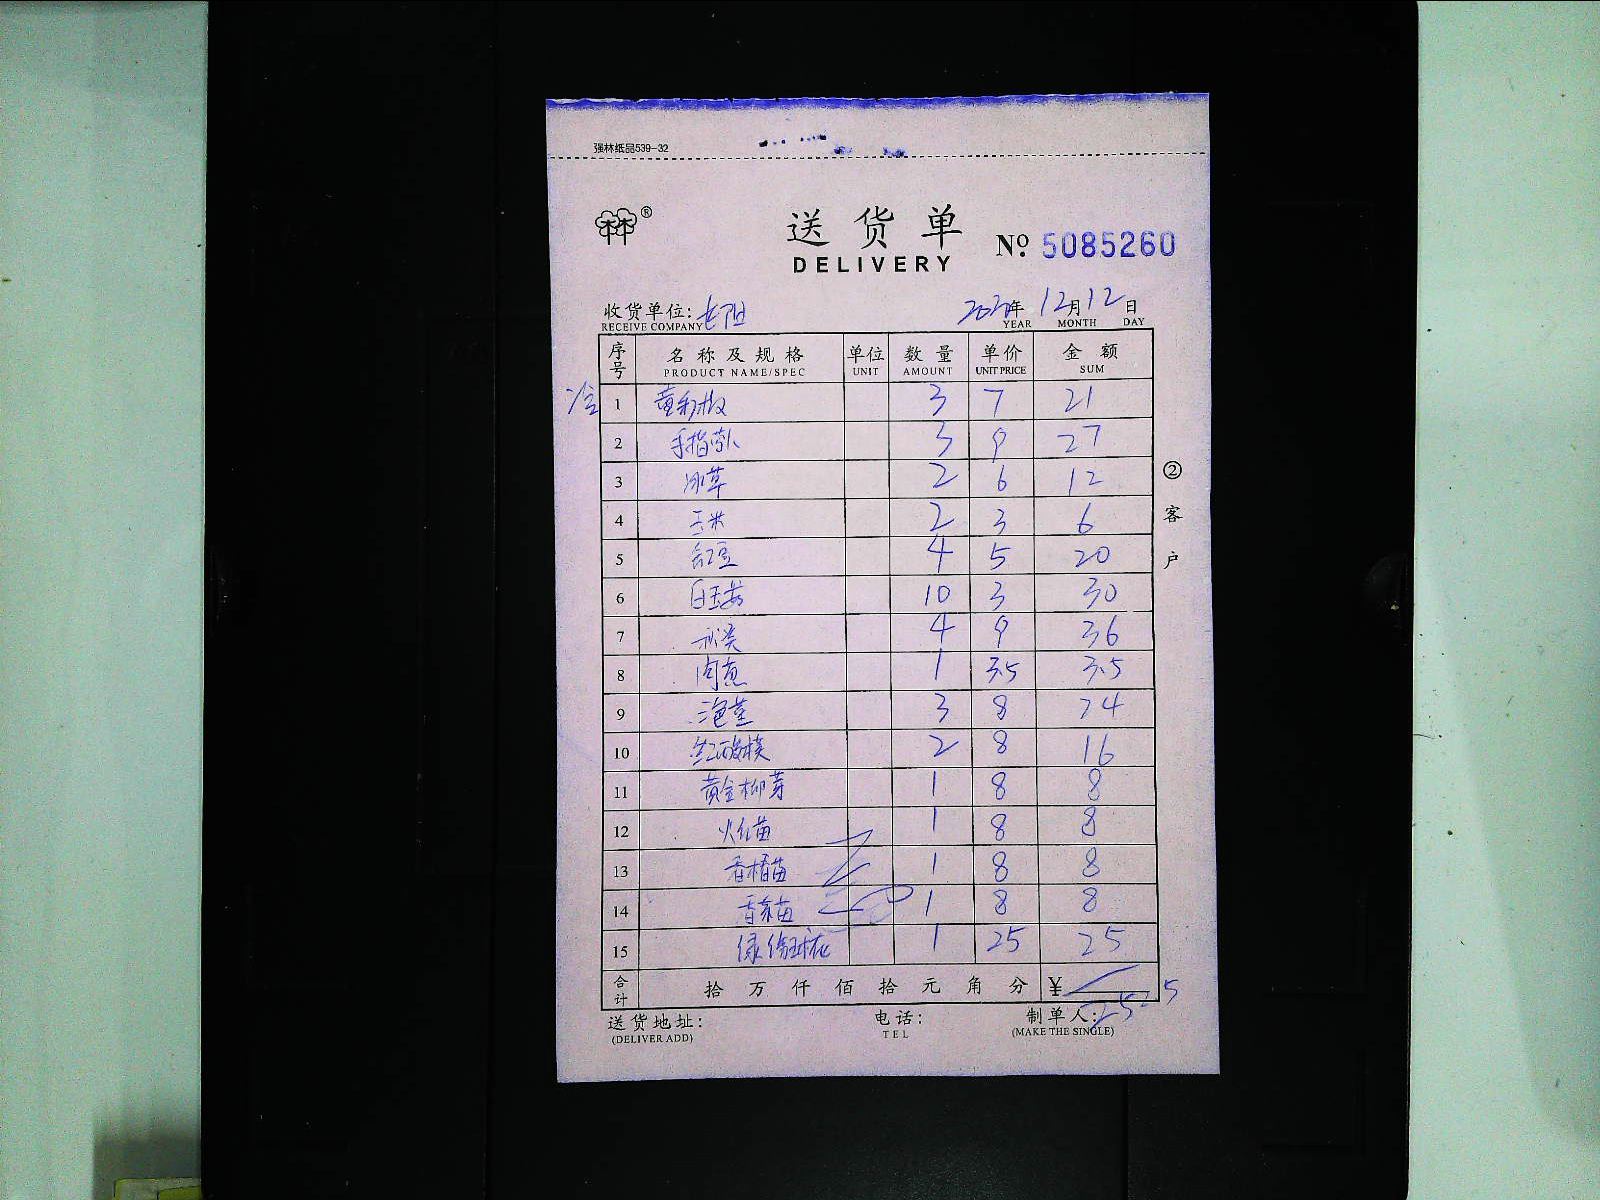 强林纸品539-32
送货单
DELIVERY
№ 5085260
收货单位:
RECEIVE COMPANY
年 12月12日
YEAR MONTH DAY
序号 名称及规格 单位 数量 单价 金额
PRODUCT NAME/SPEC UNIT AMOUNT UNIT PRICE SUM
1 3 7 21
2 手指萝卜 3 9 27
3 冰草 2 6 12
4 玉米 2 3 6
5 红豆 4 5 20
6 白玉菇 10 3 30
7 秋葵 4 9 36
8 肉葱 1 3.5 3.5
9 3 8 24
10 红酸模 2 8 16
11 黄金柳芽 1 8 8
12 苗 1 8 8
13 苗 1 8 8
14 苗 1 8 8
15 绿 1 25 25
合计 拾万仟佰拾元角分 ¥
② 客户
送货地址: 电话: 制单人:
(DELIVER ADD) TEL (MAKE THE SINGLE)